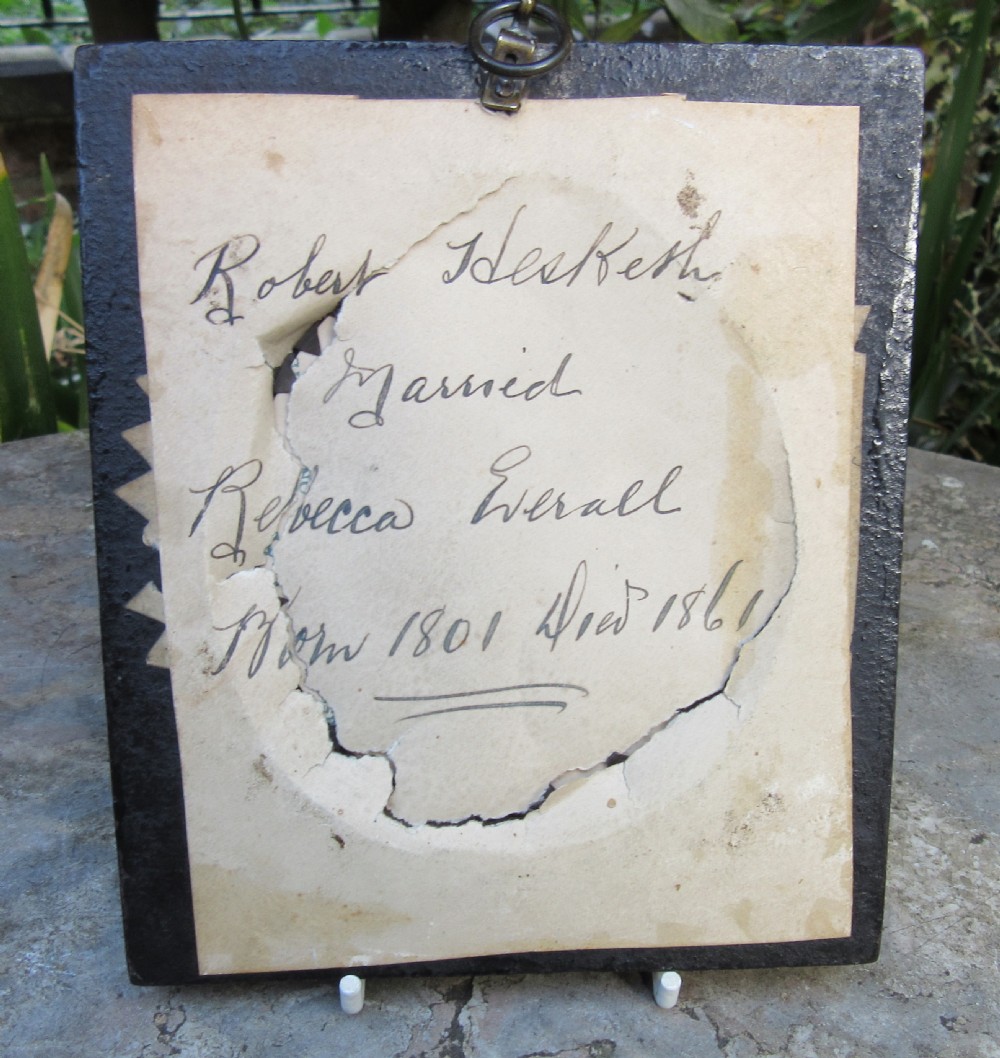 Robert Hesketh
Married
Rebecca Everall
Born 1801 Died 1861